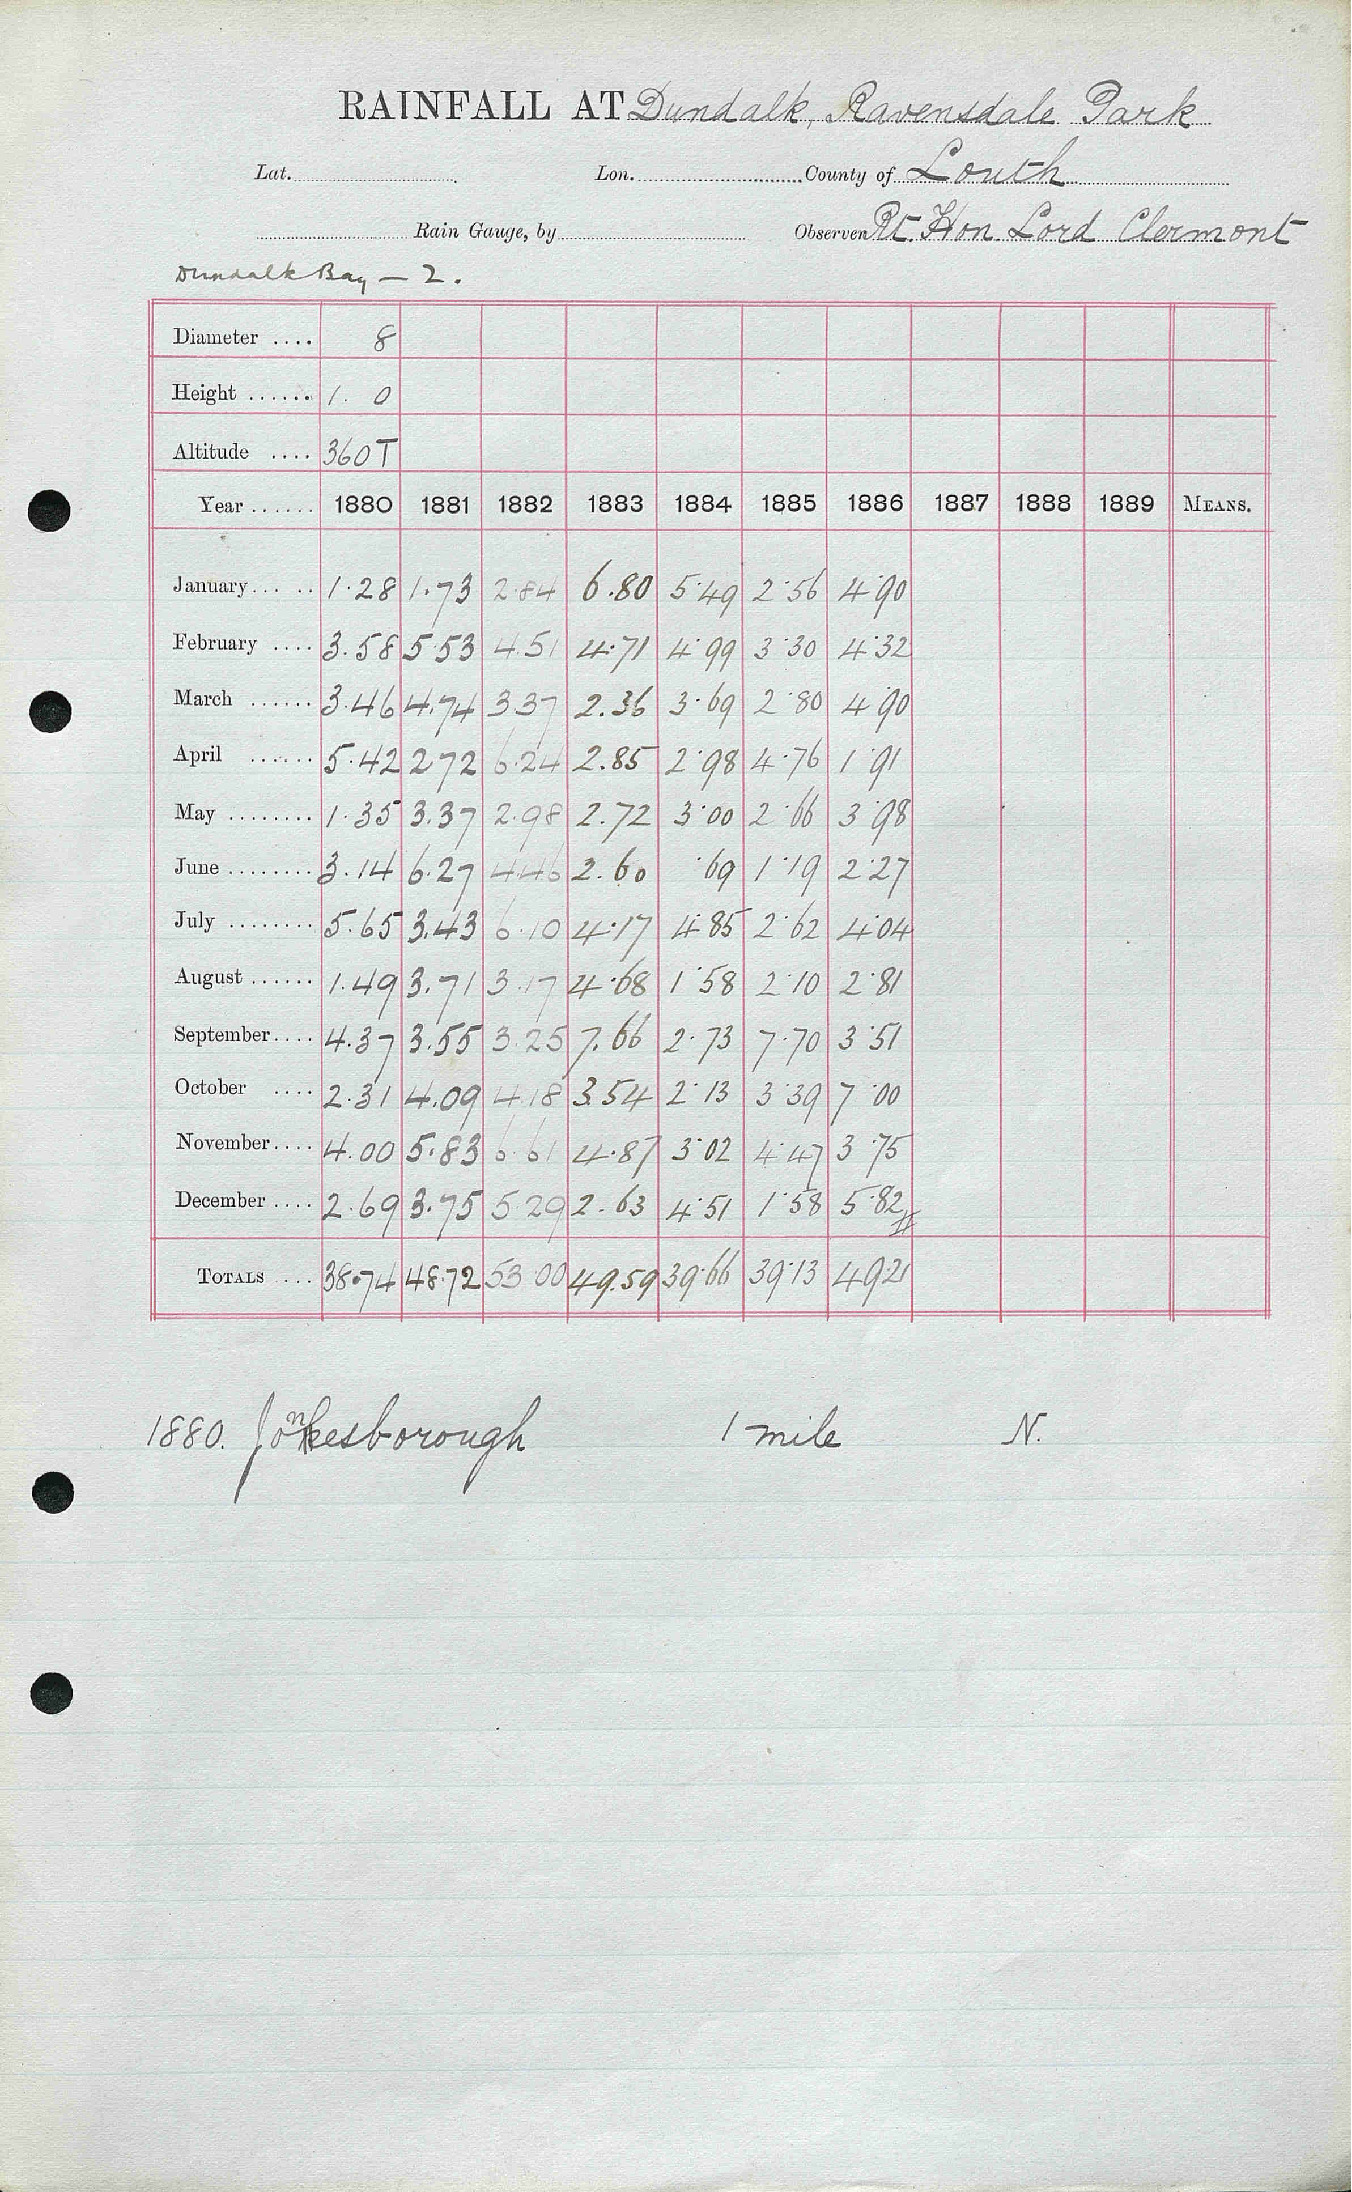 RAINFALL AT Dundalk, Ravensdale Park
Lat. Lon. County of Louth
Rain Gauge, by Observer Rt. Hon Lord Clermont
Dundalk Bay — 2.
Diameter .... 8
Height ...... 1. 0
Altitude .... 360T
Year ...... 1880 1881 1882 1883 1884 1885 1886 1887 1888 1889 MEANS.
January... .. 1.28 1.73 2.84 6.80 5.49 2.56 4.90
February .... 3.58 5.53 4.51 4.71 4.99 3.30 4.32
March ...... 3.46 4.74 3 37 2.36 3.69 2.80 4.90
April ...... 5.42 2 72 6.24 2.85 2.98 4.76 1.91
May ........ 1.35 3.37 2.98 2.72 3.00 2.66 3.98
June ........ 3.14 6.27 4.46 2.60 .69 1.19 2.27
July ........ 5.65 3.43 6.10 4.17 4.85 2.62 4.04
August ...... 1.49 3.71 3.17 4.68 1.58 2.10 2.81
September.... 4.37 3.55 3.25 7.66 2.73 7.70 3.51
October .... 2.31 4.09 4.18 3.54 2.13 3.39 7.00
November.... 4.00 5.83 6.61 4.87 3.02 4.47 3.75
December .... 2.69 3.75 5.29 2.63 4.51 1.58 5.82
TOTALS .... 38.74 48.72 53.00 49.59 39.66 39.13 49.21
1880. Jonesborough 1 mile N.